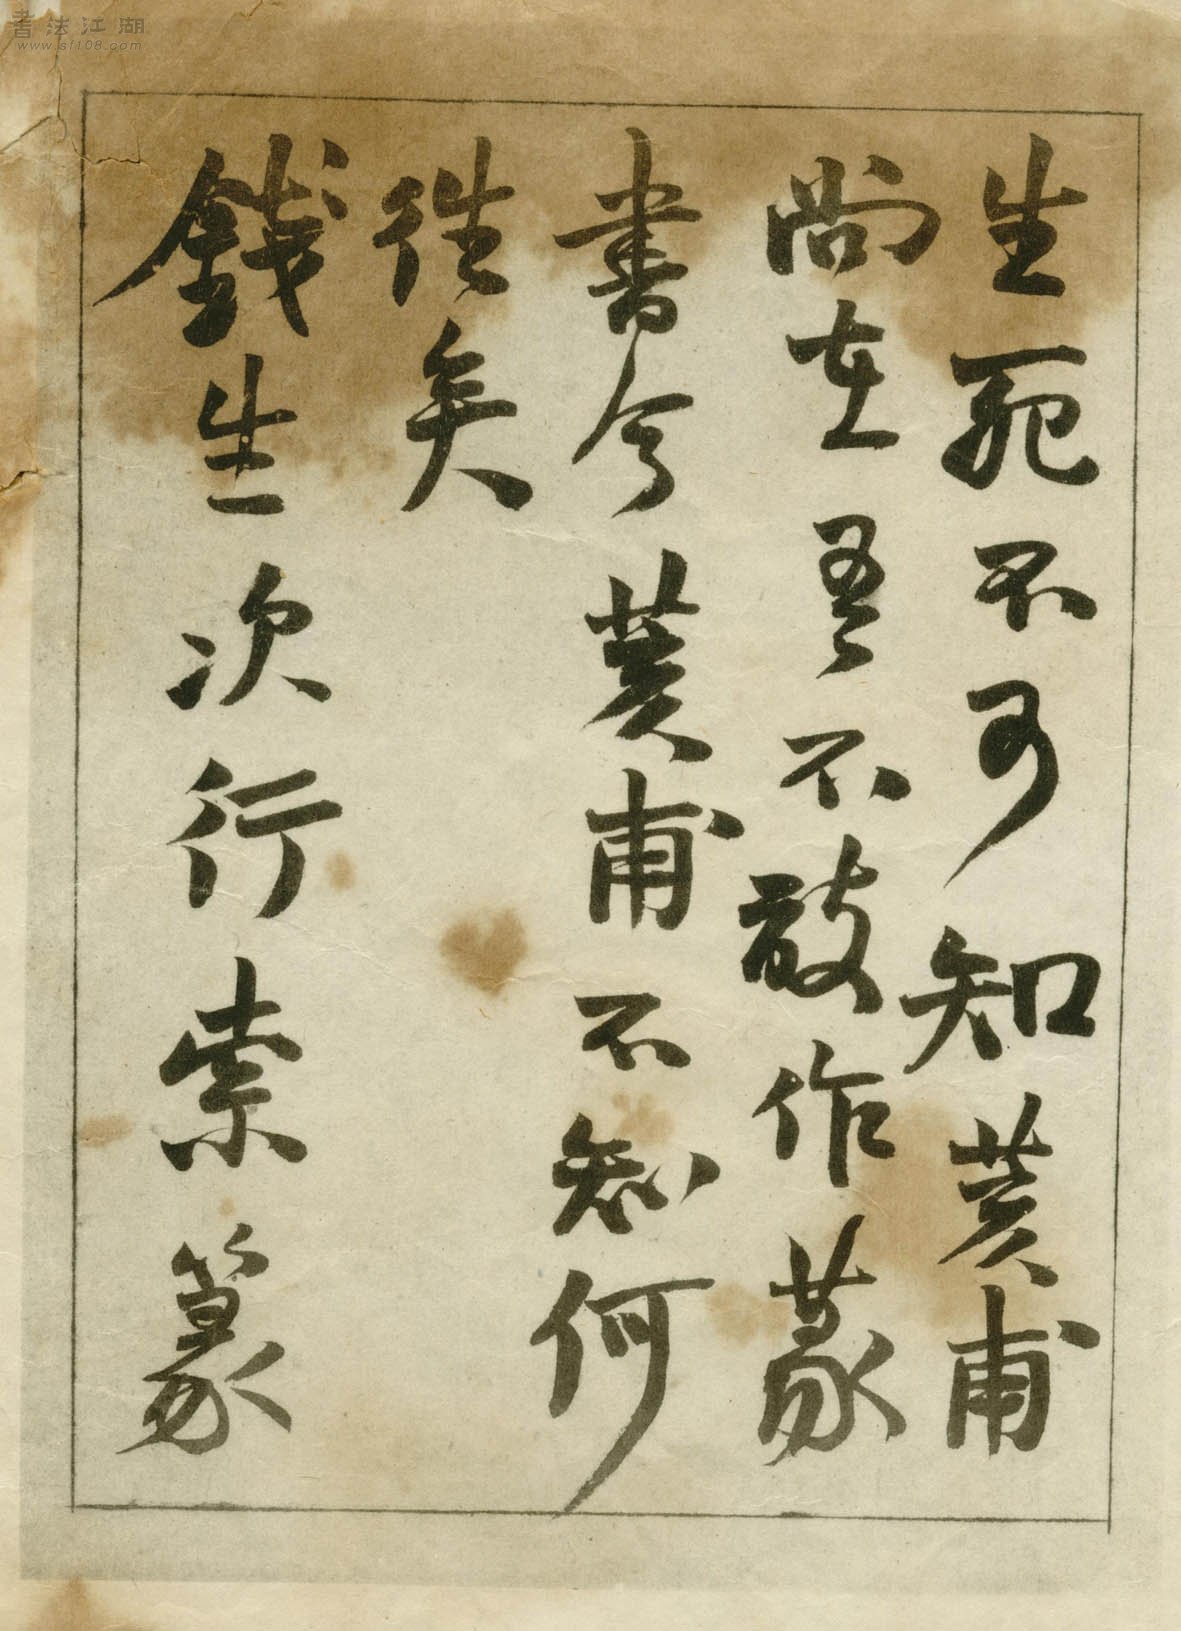 書法江湖
www.sf108.com
生死不可知荄甫
尚在吾不敢作篆
書今荄甫不知何
往矣
錢生次行索篆